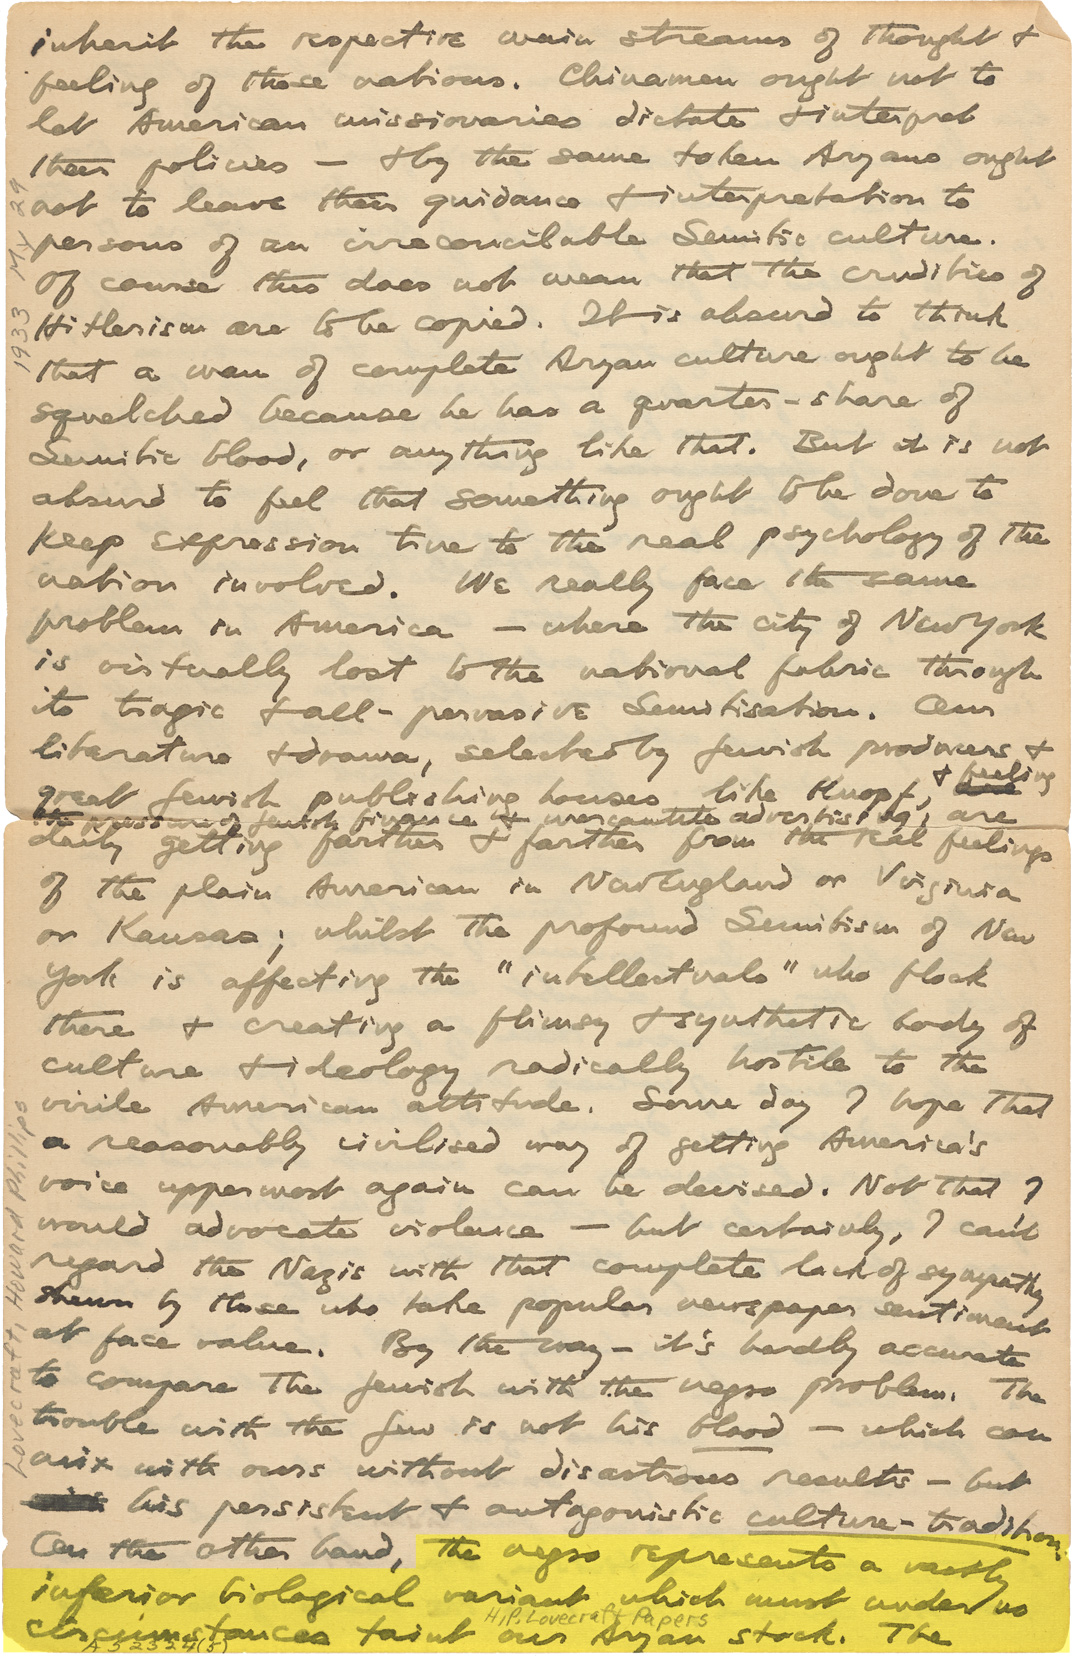 inherit the respective main streams of thought &
feeling of those nations. Chinamen ought not to
let American missionaries dictate & interpret
their policies — & by the same token Aryans ought
not to leave their guidance & interpretation to
persons of an irreconcilable Semitic culture.
Of course this does not mean that the crudities of
Hitlerism are to be copied. It is absurd to think
that a man of complete Aryan culture ought to be
squelched because he has a quarter-share of
Semitic blood, or anything like that. But it is not
absurd to feel that something ought to be done to
keep expression true to the real psychology of the
nation involved. We really face the same
problem in America — where the city of New York
is virtually lost to the national fabric through
its tragic & all-pervasive Semitisation. Our
literature & drama, selected by Jewish producers &
great Jewish publishing houses like Knopf, & feeling
the pressure of Jewish finance & mercantile advertising, are
daily getting farther & farther from the real feelings
of the plain American in New England or Virginia
or Kansas; whilst the profound Semitism of New
York is affecting the "intellectuals" who flock
there & creating a flimsy & synthetic body of
culture & ideology radically hostile to the
virile American attitude. Some day I hope that
a reasonably civilised way of getting America's
voice uppermost again can be devised. Not that I
would advocate violence — but certainly, I can't
regard the Nazis with that complete lack of sympathy
shewn by those who take popular newspaper sentiment
at face value. By the way — it's hardly accurate
to compare the Jewish with the negro problem. The
trouble with the Jew is not his blood — which can
mix with ours without disastrous results — but
his persistent & antagonistic culture-tradition.
On the other hand, the negro represents a vastly
inferior biological variant which must under no
circumstances taint our Aryan stock. The
H.P. Lovecraft Papers
A52324(5)
1933 My 29
Lovecraft, Howard Phillips